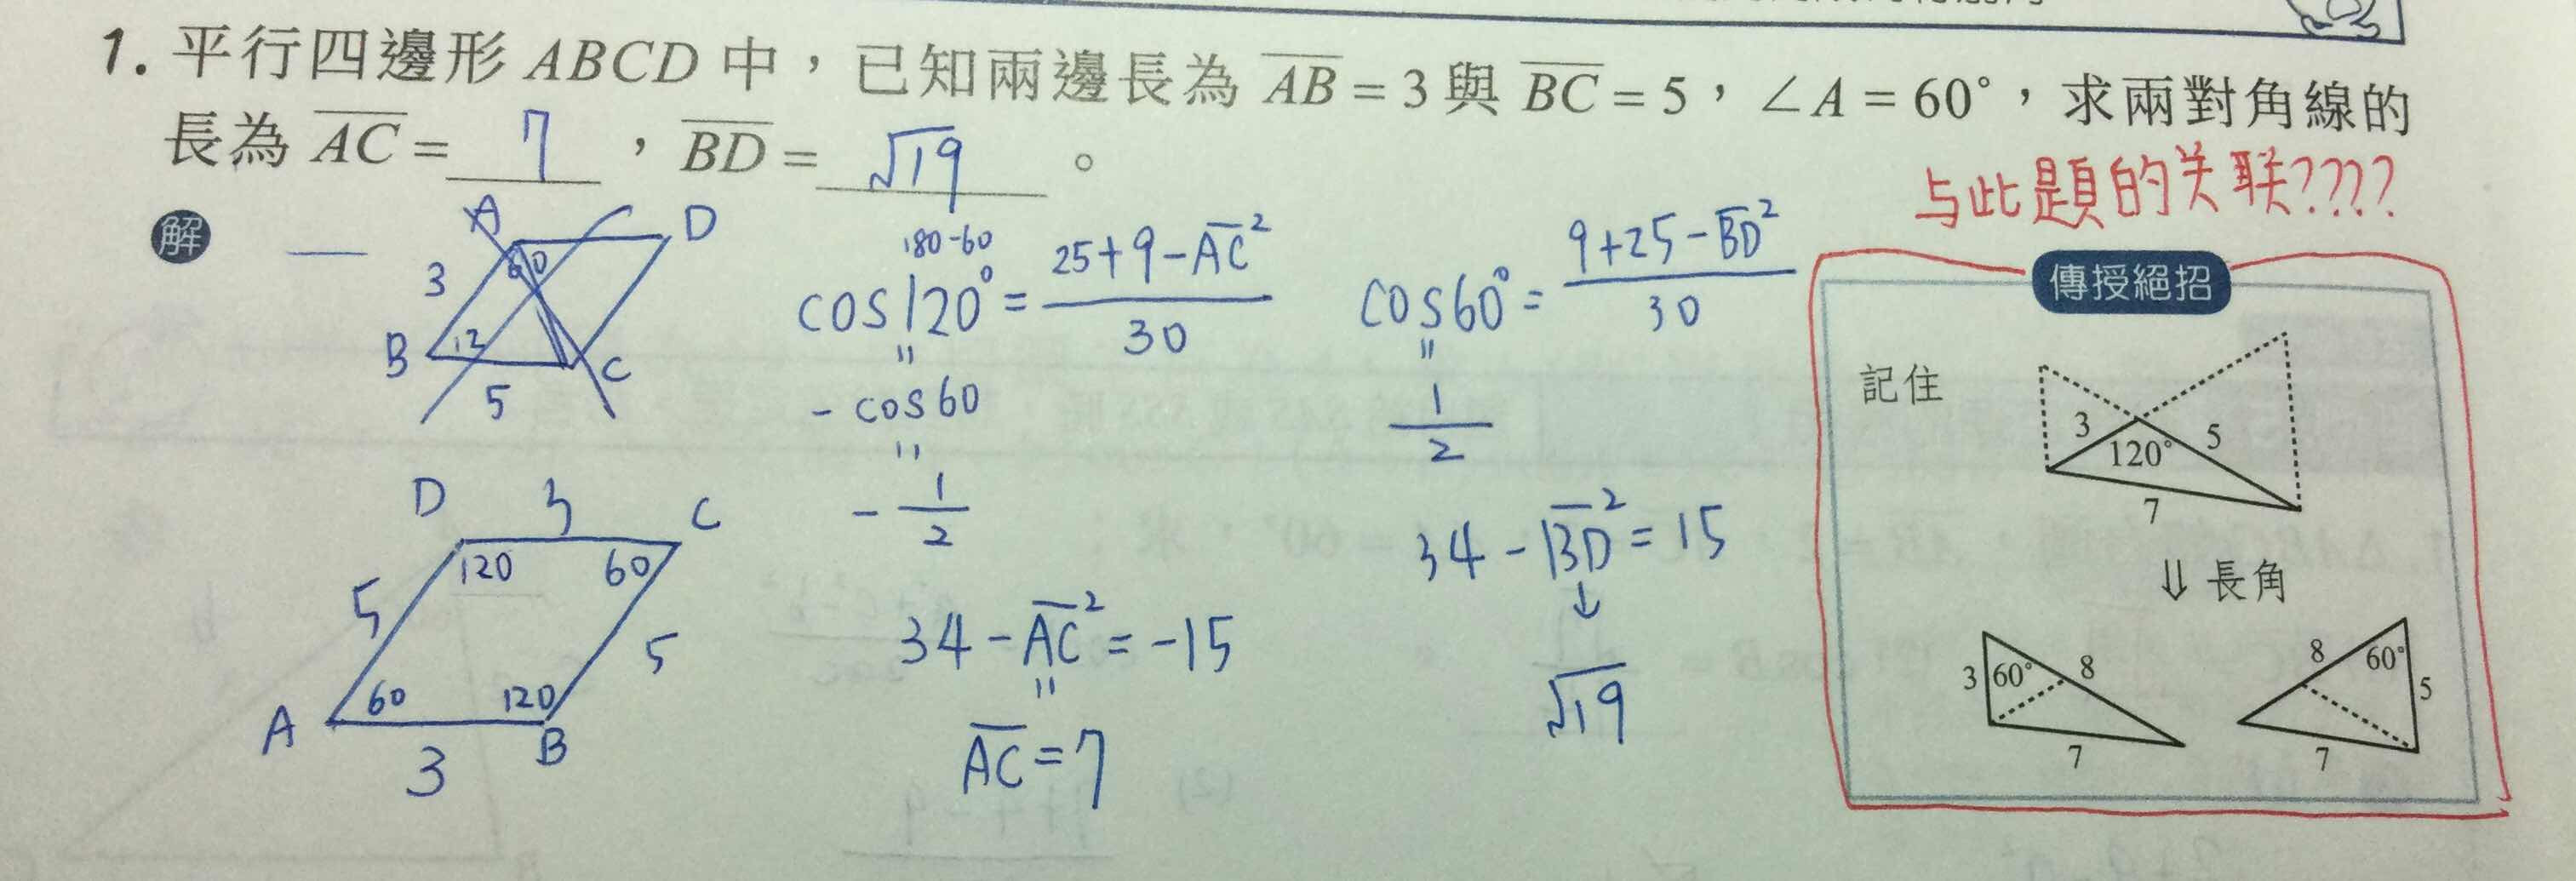 1. 平行四邊形 ABCD 中，已知兩邊長為 AB = 3 與 BC = 5，∠A = 60°，求兩對角線的
長為 AC = 7，BD = √19。
与此題的关联????
解
A D
3 60
B 12 C
5
D 3 C
120 60
5 5
60 120
A B
3
180-60
cos120° = (25+9-AC²)/30
"
- cos60
"
- 1/2
34 - AC² = -15
"
AC = 7
cos60° = (9+25-BD²)/30
"
1/2
34 - BD² = 15
↓
√19
傳授絕招
記住
3 120° 5
7
⇓ 長角
3 60° 8
7
8 60°
5
7